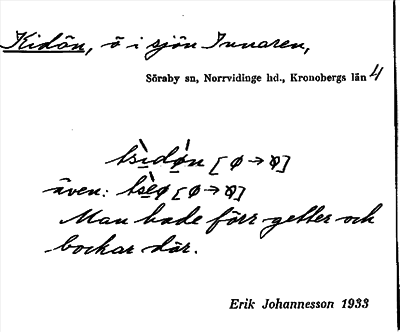 Kidön, ö i sjön Innaren,
Söraby sn, Norrvidinge hd., Kronobergs län 4
tsìdǿn [ø→ꝋ]
även: tsèø [ø→ꝋ]
Man hade förr getter och
bockar där.
Erik Johannesson 1933